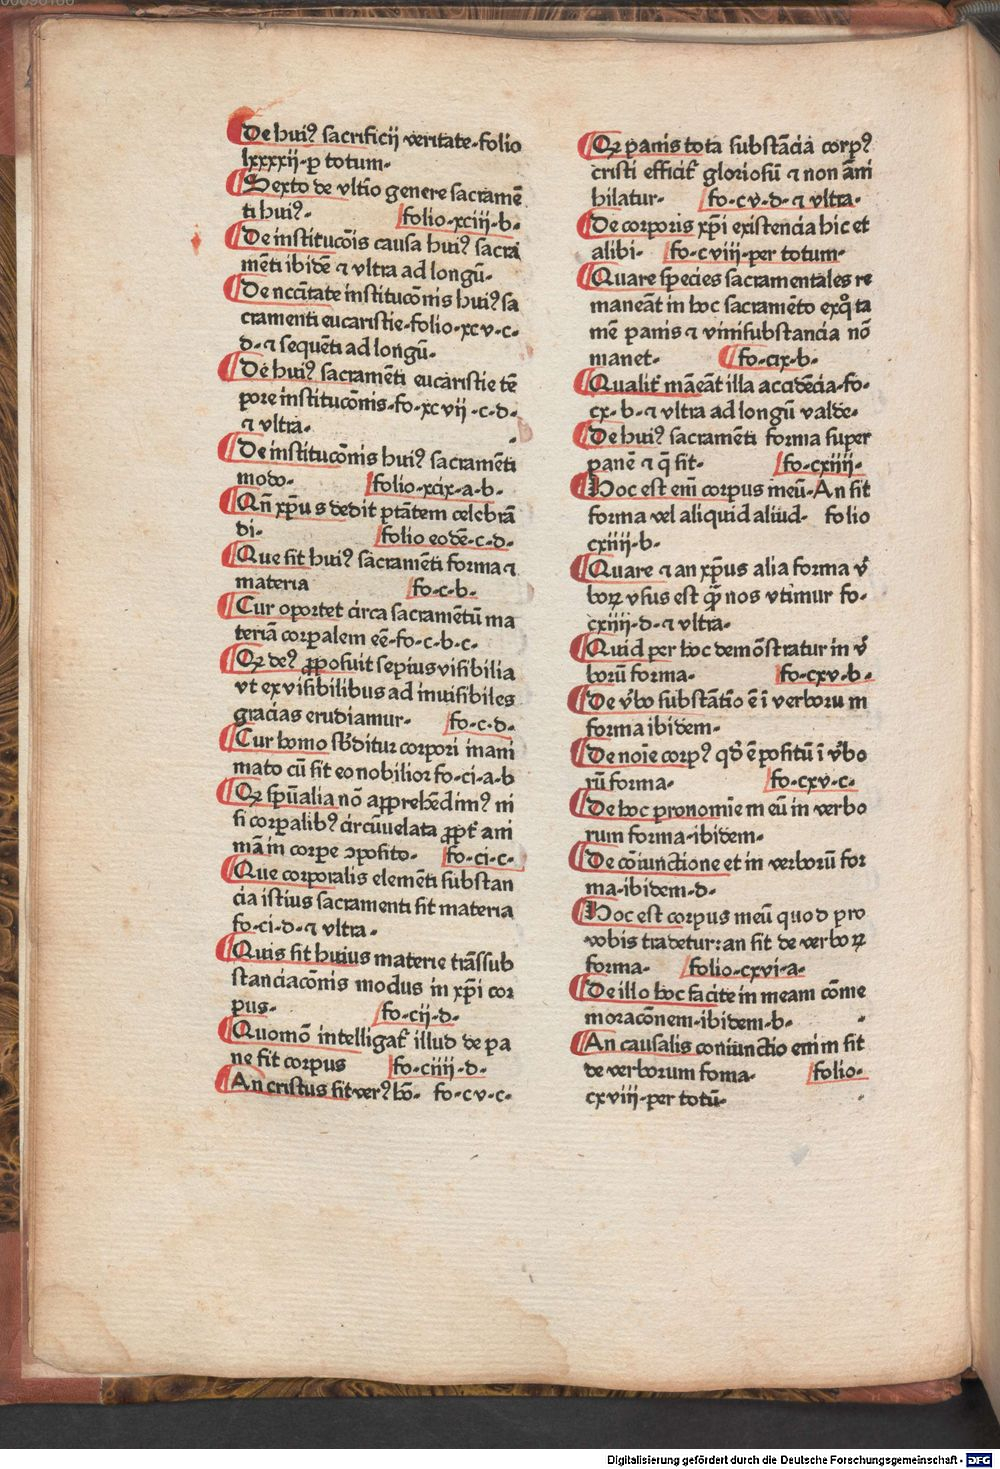 De huiꝰ sacrificij veritate·folio
lxxxxij·ꝑ totum·
Sexto de vltīo genere sacramē
ti huiꝰ· folio·xciij·b·
De institucōis causa huiꝰ sacra
mēti ibidē ⁊ vltra ad longū·
De nccītate institucōnis huiꝰ sa
cramenti eucaristie·folio·xcv·c·
d·⁊ sequēti ad longū·
De huiꝰ sacramēti eucaristie tē
pore institucōnis·fo·xcvij·c·d·
⁊ vltra·
De institucōnis huiꝰ sacramēti
modo· folio·xcix·a·b·
Qn̄ xp̄us dedit ptātem celebrā
di· folio eodē·c·d·
Que sit huiꝰ sacramēti forma ⁊
materia fo·c·b·
Cur oportet circa sacramētū ma
teriā corpalem eē·fo·c·b·c·
Qꝫ deꝰ ꝓposuit sepius visibilia
vt ex visibilibus ad inuisibiles
gracias erudiamur· fo·c·d·
Cur homo sb̄ditur corpori inani
mato cū sit eo nobilior fo·ci·a·b
Qꝫ spūalia nō apprehēdimꝰ ni
si corpalibꝰ circūuelata ꝓpt̄ ani
mā in corpe ↄposito· fo·ci·c·
Que corporalis elemēti substan
cia istius sacramenti sit materia
fo·ci·d·⁊ vltra·
Quis sit huius materie trāssub
stanciacōnis modus in xp̄i cor
pus· fo·cij·d·
Quomō intelligat̄ illud de pa
ne fit corpus fo·ciiij·d·
An cristus sit verꝰ hō· fo·cv·c·
Qꝫ panis tota substācia corpꝰ
cristi efficit̄ gloriosū ⁊ non āni
hilatur· fo·cv·d·⁊ vltra·
De corporis xp̄i existencia hic et
alibi· fo·cviij·per totum·
Quare species sacramentales re
maneāt in hoc sacramēto exq̊ ta
mē panis ⁊ vini substancia nō
manet· fo·cix·b·
Qualit̄ māeāt illa accidēcia·fo·
cx·b·⁊ vltra ad longū valde·
De huiꝰ sacramēti forma super
panē ⁊ q̄ sit· fo·cxiiii·
Hoc est em̄ corpus meū·An sit
forma vel aliquid aliud· folio
cxiiij·b·
Quare ⁊ an xp̄us alia forma v̄
boꝝ vsus est q̄ꝫ nos vtimur fo·
cxiiij·d·⁊ vltra·
Quid per hoc demōstratur in v̄
borū forma· fo·cxv·b·
De v̄bo substātīo ē ī verboru m
forma ibidem·
De noīe corpꝰ qd̓ ē positū ī v̄bo
rū forma· fo·cxv·c·
De hoc pronomīe m eū in verbo
rum forma·ibidem·
De cōiunctione et in verborū for
ma·ibidem·d·
Hoc est corpus meū quod pro
vobis tradetur:an sit de verboꝝ
forma· folio·cxvi·a·
De illo hoc facite in meam cōme
moracōnem·ibidem·b·
An causalis coniunctio enim sit
de verborum foma· folio·
cxviij·per totū·
Digitalisierung gefördert durch die Deutsche Forschungsgemeinschaft - DFG